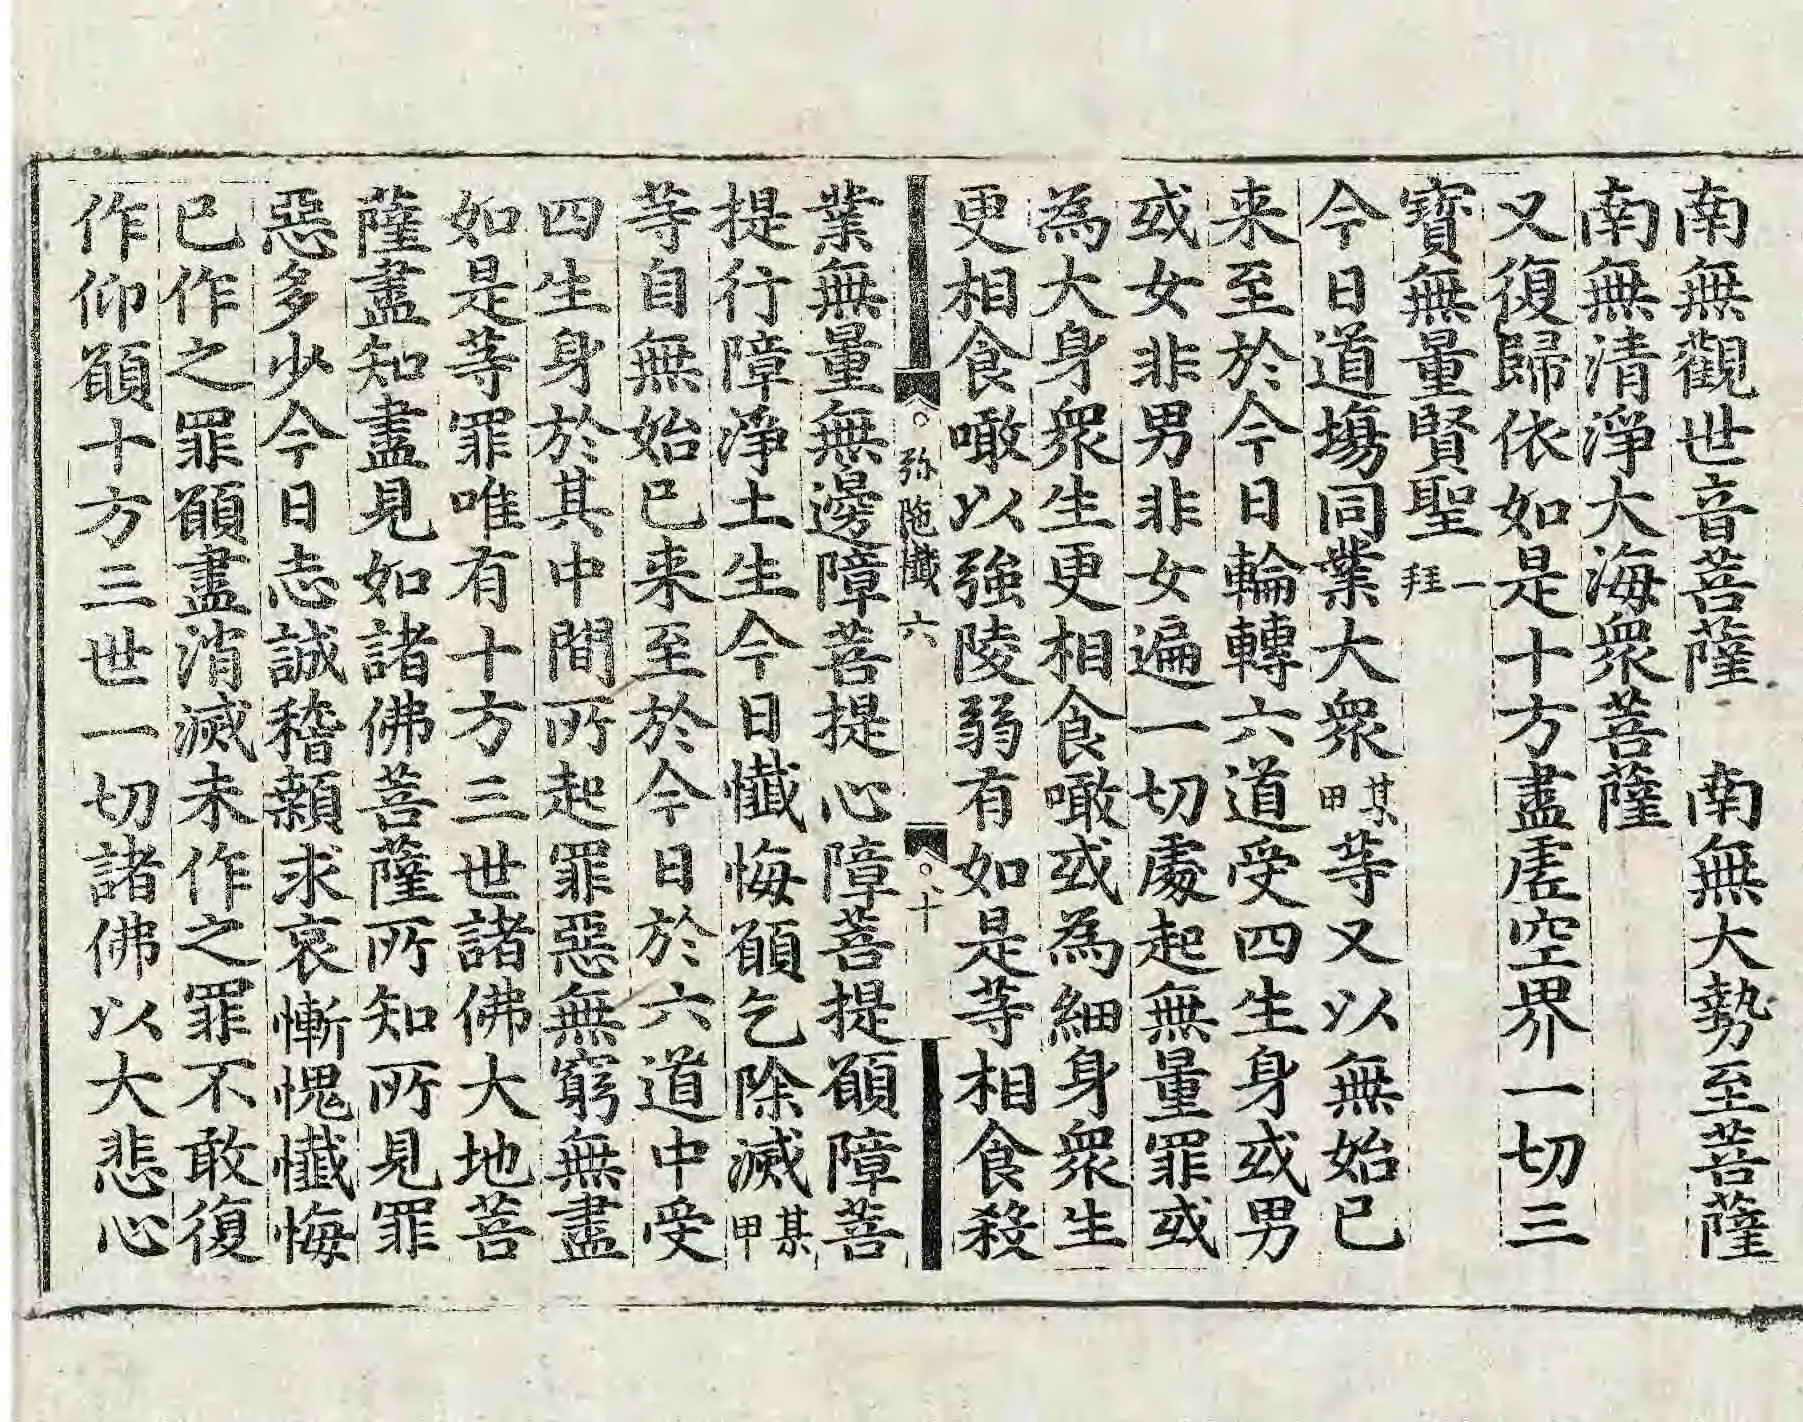 南無觀世音菩薩　南無大勢至菩薩
南無清淨大海衆菩薩
又復歸依如是十方盡虛空界一切三
寶無量賢聖 一拜
今日道場同業大衆某甲等又以無始已
来至於今日輪轉六道受四生身或男
或女非男非女遍一切處起無量罪或
為大身衆生更相食噉或為細身衆生
更相食噉以強陵弱有如是等相食殺
弥陁懺六　十
業無量無邊障菩提心障菩提願障菩
提行障淨土生今日懺悔願乞除滅某甲
等自無始已来至於今日於六道中受
四生身於其中間所起罪惡無窮無盡
如是等罪唯有十方三世諸佛大地菩
薩盡知盡見如諸佛菩薩所知所見罪
惡多少今日志誠稽顙求哀慚愧懺悔
已作之罪願盡消滅未作之罪不敢復
作仰願十方三世一切諸佛以大悲心